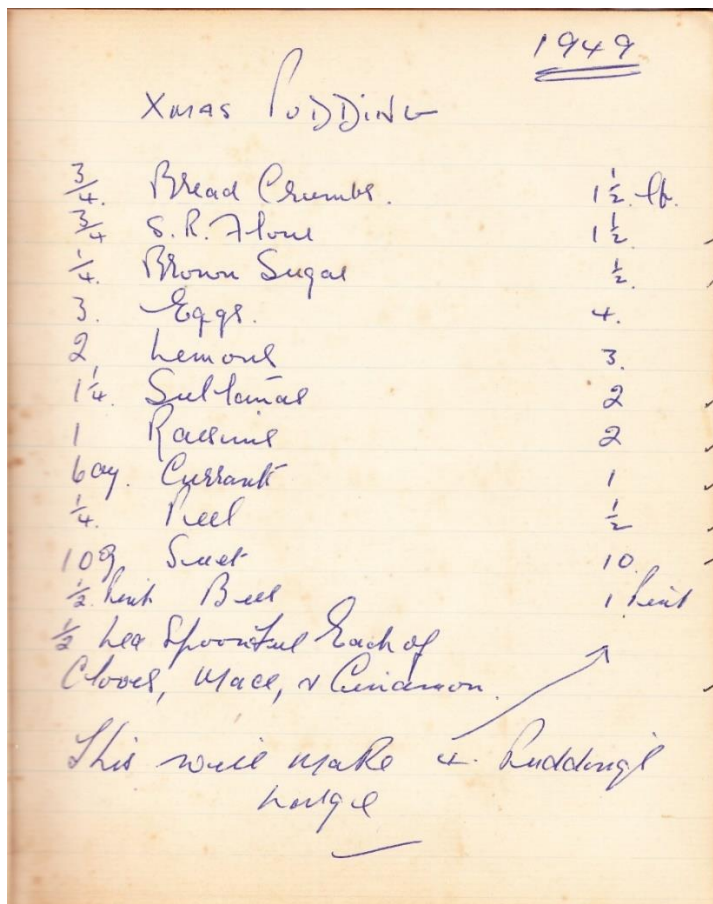 1949
Xmas Pudding
3/4. Bread Crumbs. 1 1/2. lb.
3/4 S.R. Flour 1 1/2.
1/4. Brown Sugar 1/2.
3. Eggs. 4.
2 Lemons 3.
1 1/4. Sultanas 2
1 Raisins 2
6 oz. Currants 1
1/4. Peel 1/2
10 oz Suet 10.
1/2 Pint Beer 1 Pint
1/2 Tea Spoonful Each of
Cloves, Mace, & Cinamon.
This will make 4. Puddings
Large